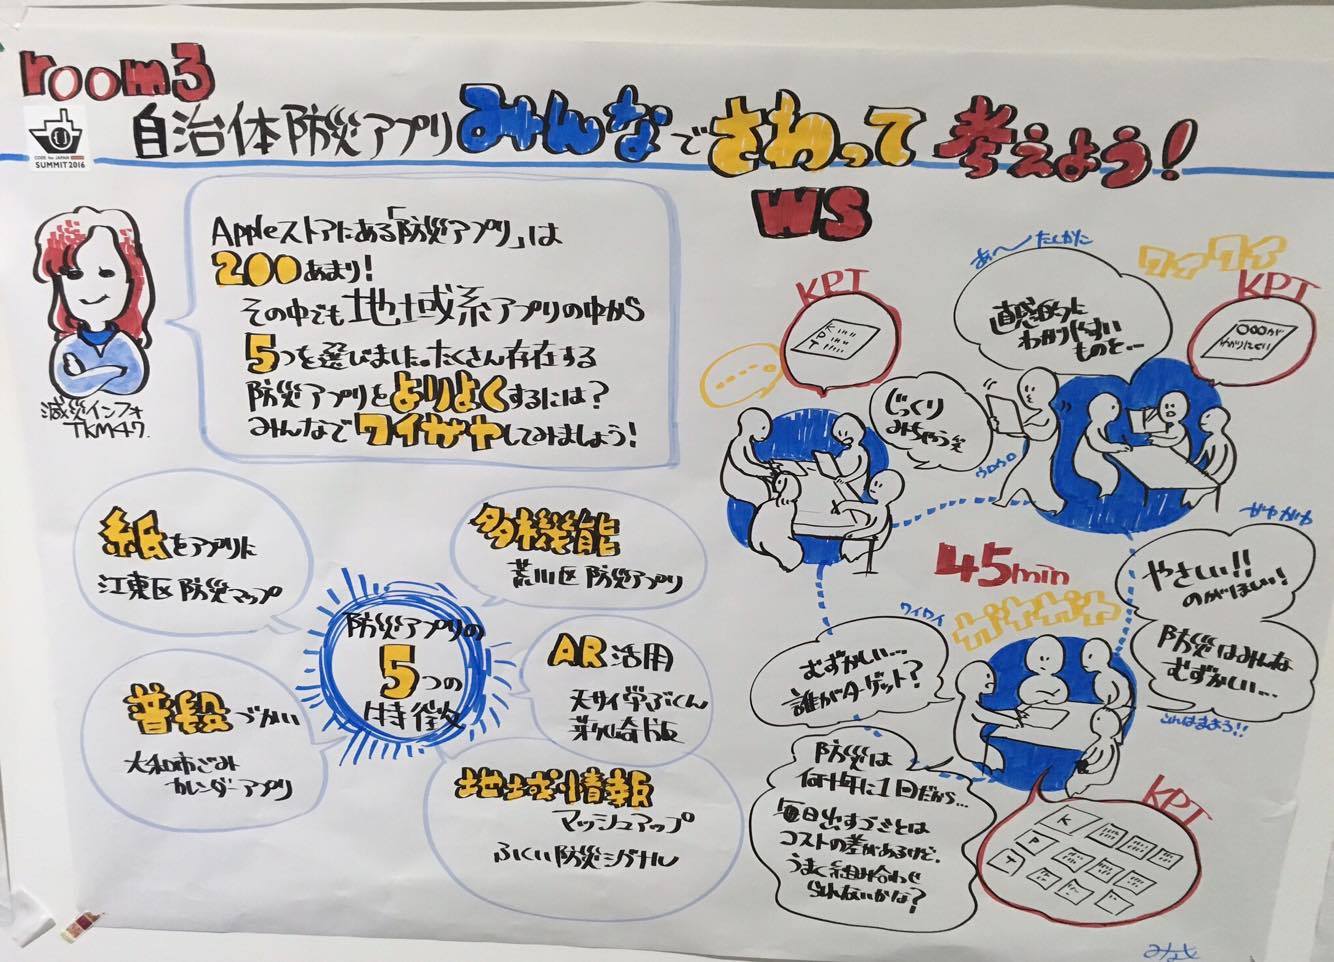 room3
CODE for JAPAN
SUMMIT2016
自治体防災アプリみんなでさわって考えよう!
WS
Appleストアにある「防災アプリ」は
200あまり!
その中でも地域系アプリの中から
5つを選びました。たくさん存在する
防災アプリをよりよくするには?
みんなでワイガヤしてみましょう!
減災インフォ
TKM47.
紙をアプリに
江東区防災マップ
多機能
荒川区防災アプリ
防災アプリの
5つの
特徴
AR活用
天サイ学ぶくん
茅ヶ崎版
普段づかい
大和市ごみ
カレンダーアプリ
地域情報
マッシュアップ
ふくい防災シグナル
KPT
K
P
T
あ〜たしかに
直感的に
わかりやすい
ものを…
ワイワイ
KPT
〇〇〇が
わかりにくい
じっくり
みちゃう笑
ウロウロ
45min
ガヤガヤ
やさしい!!
のがほしい!
防災はみんな
むずかしい…
ワイワイ
むずかしい…
誰がターゲット?
防災は
何十年に1回だから…
毎日出すごみとは
コストの差があるけど、
うまく組み合わせ
られないかな?
KPT
K
P
T